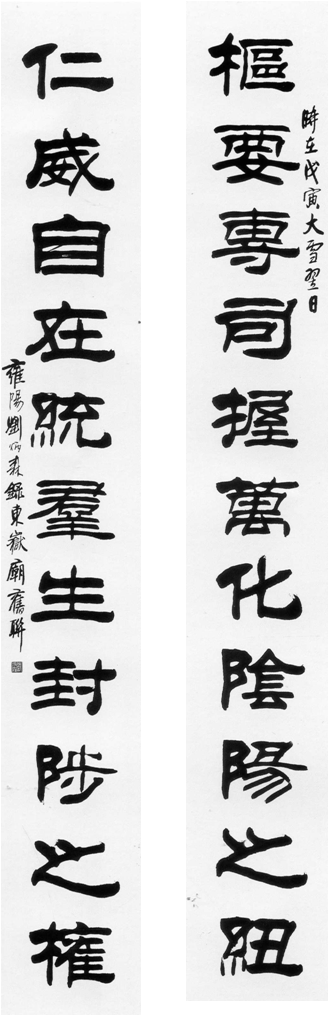 樞要專司握萬化陰陽之紐
時在戊寅大雪翌日
仁威自在統羣生封陟之權
雍陽劉炳森錄東嶽廟舊聯